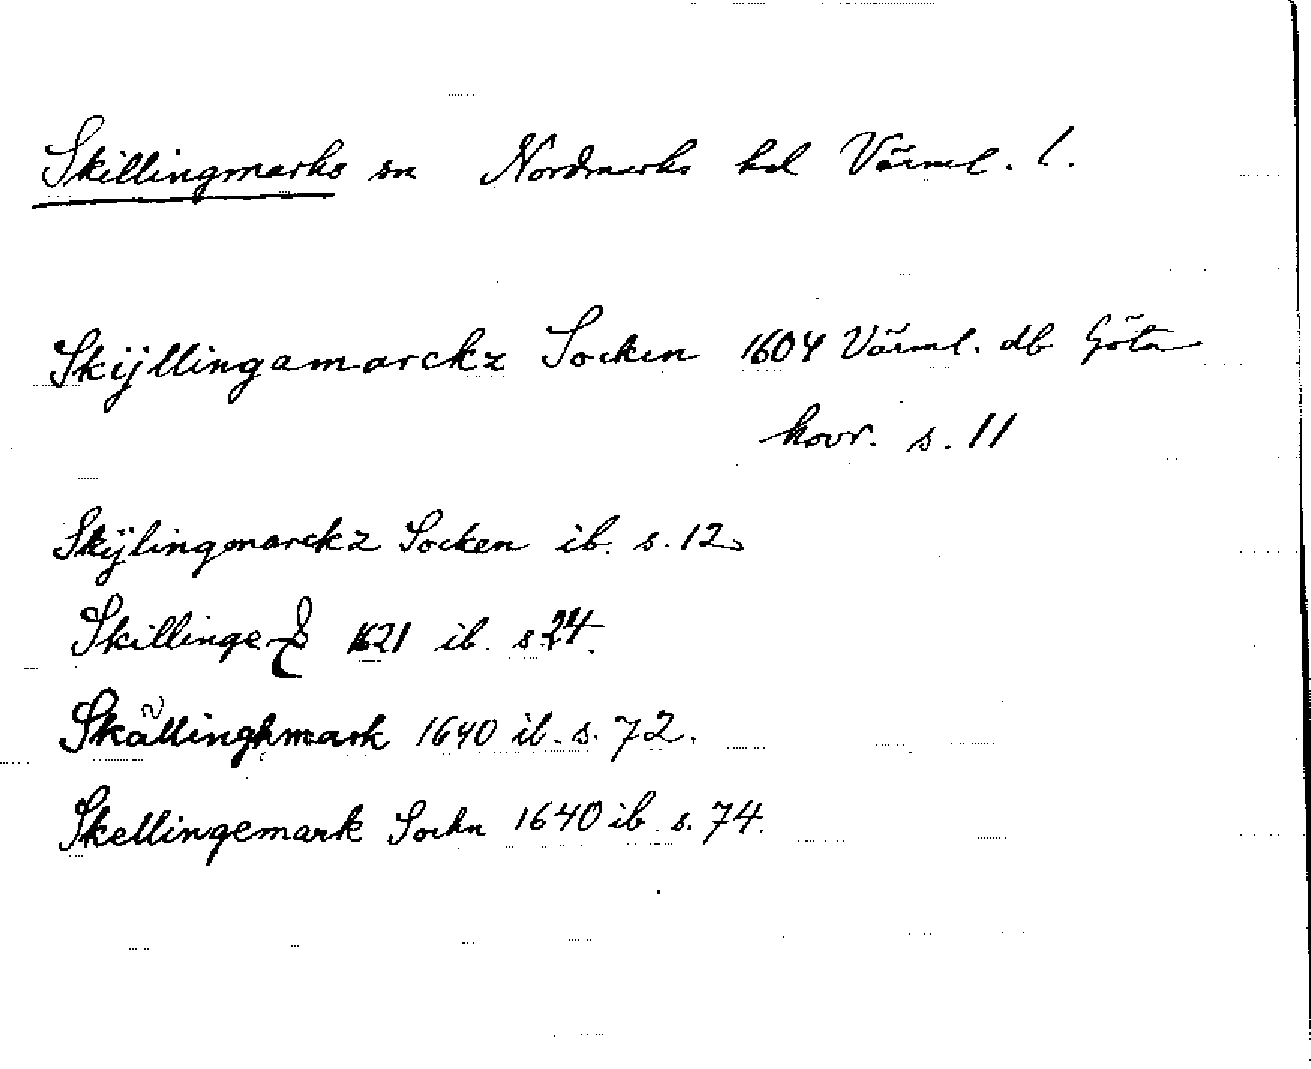 Skillingmarks sn Nordmarks hd Värml. l.
Skÿllingamarckz Socken 1604 Värml. db Göta
hovr. s. 11
Skÿlingmarckz Socken ib. s. 12
Skillinge 1621 ib. s 24.
Skällinghmark 1640 ib. s. 72.
Skellingemark Sochn 1640 ib s. 74.